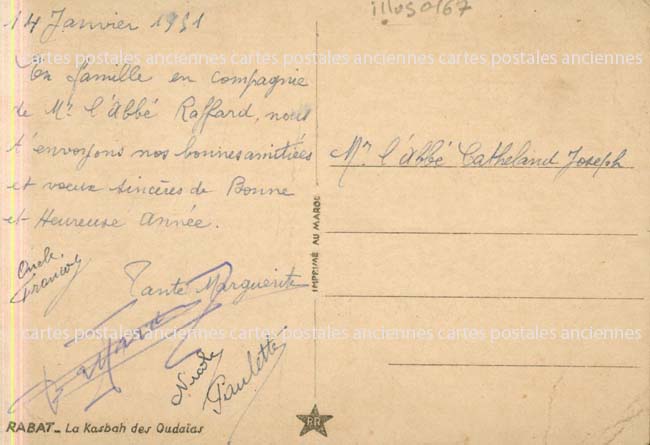 14 Janvier 1951
illus 0167
cartes postales anciennes cartes postales anciennes cartes postales anciennes
En famille en compagnie
de Mr l'Abbé Raffard, nous
t'envoyons nos bonnes amitiées
et voeux sincères de Bonne
et Heureuse Année.
Oncle
François
Tante Marguerite
cartes postales anciennes cartes postales anciennes cartes postales anciennes
Nicole
Paulette
RABAT - La Kasbah des Oudaïas
IMPRIMÉ AU MAROC
RR
Mr l'Abbé Catheland Joseph